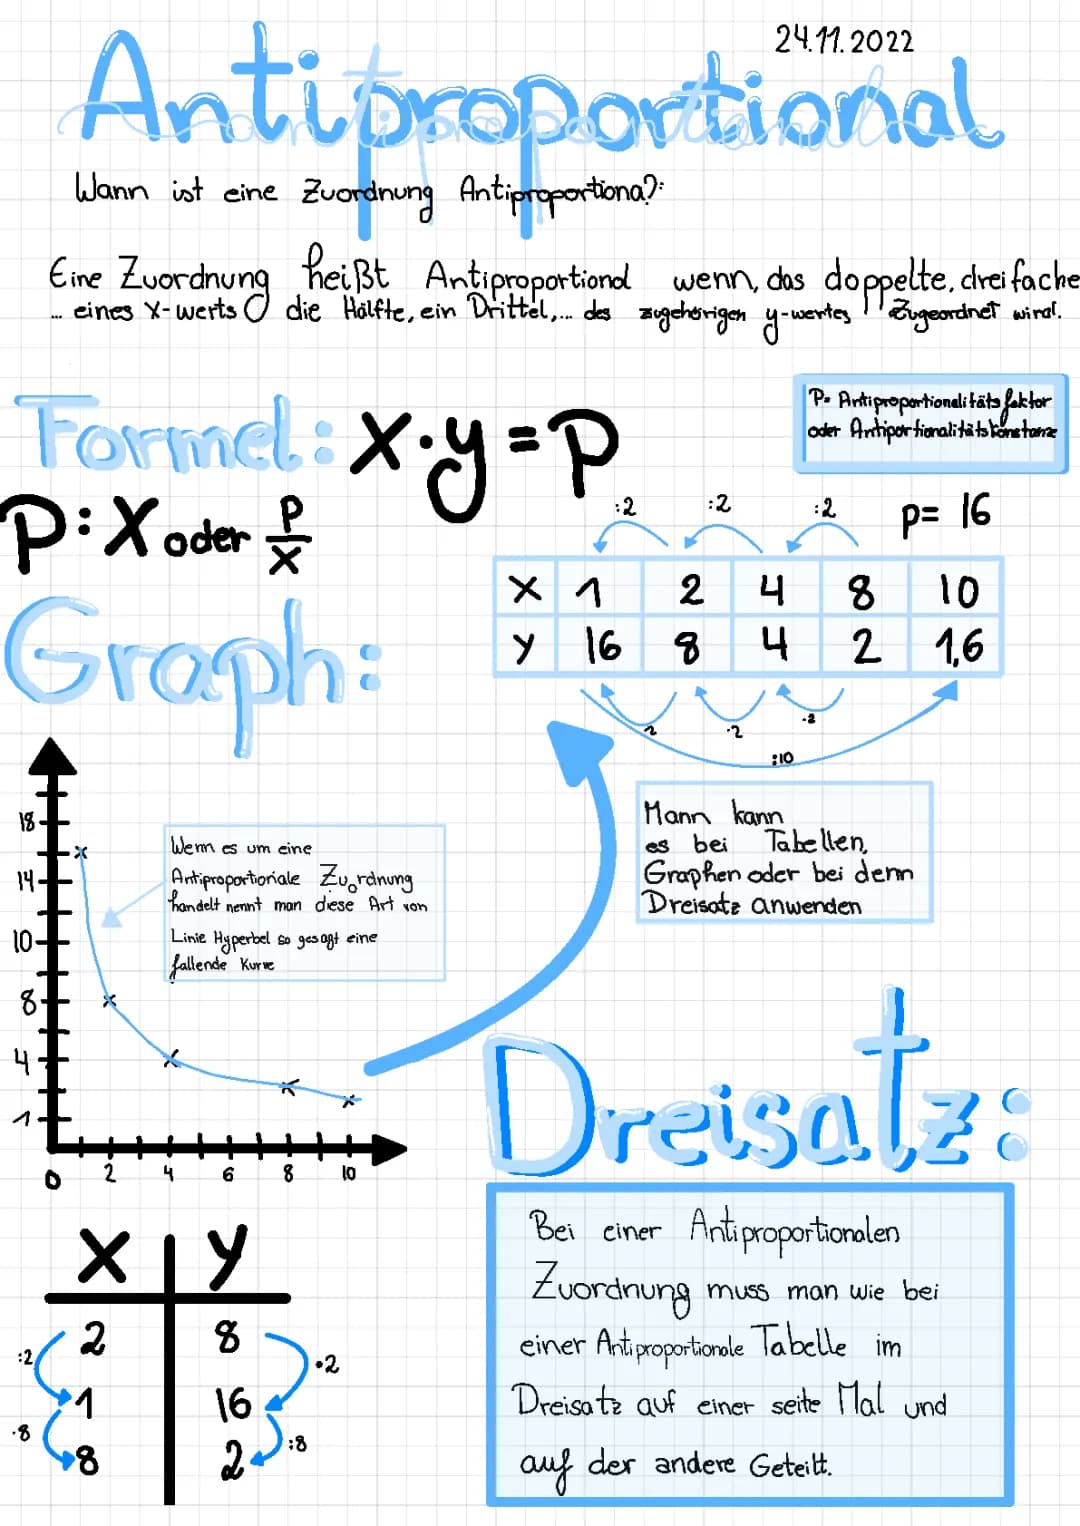 24.11.2022
Antiproportional
antiproportional
Wann ist eine Zuordnung Antiproportiona?:
Eine Zuordnung heißt Antiproportional wenn, das doppelte, dreifache
... eines X-werts die Hälfte, ein Drittel,... des zugehörigen y-wertes Zugeordnet wird.
Formel: X·y=P
P= Antiproportionalitäts faktor
oder Antiportionalitäts konstanze
P:X oder P/X
:2 :2 :2 p= 16
X 1 2 4 8 10
y 16 8 4 2 1,6
·2 ·2 ·2
:10
Graph:
18
14
10
8
4
1
0 2 4 6 8 10
Wenn es um eine
Antiproportionale Zuordnung
handelt nennt man diese Art von
Linie Hyperbel so gesagt eine
fallende Kurve
Mann kann
es bei Tabellen,
Graphen oder bei denn
Dreisatz anwenden
Dreisatz:
Bei einer Antiproportionalen
Zuordnung muss man wie bei
einer Antiproportionale Tabelle im
Dreisatz auf einer seite Mal und
auf der andere Geteilt.
X y
2 8
:2 ·2
1 16
·8 :8
8 2